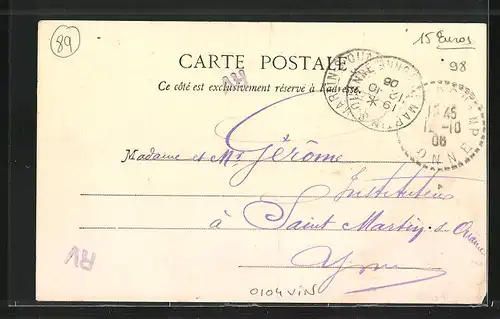 89
15 Euros
98
CARTE POSTALE
Ce côté est exclusivement réservé à l'adresse.
RV
Madame et Mr Gérôme
Instituteur
à Saint Martin s. Ouanne
Yonne
RV
0104VIN